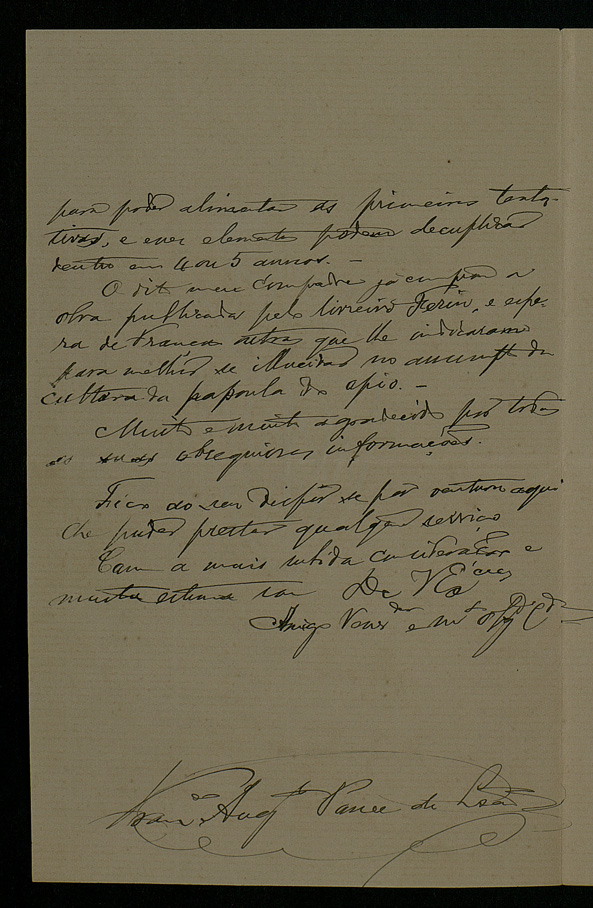 para poder alimentar as primeiras tenta-
tivas, e esses elementos podem decuplicar
dentro em 4 ou 5 annos. –
O dito meu Compadre já comprou a
obra publicada pelo livreiro Ferin, e espe-
ra de França outra que lhe indicaram
para melhor se illucidar no assumpto da
cultura da papoula do opio. –
Muito e muito agradecido por todas
as suas obsequiosas informações.
Fico ao seu dispor se por ventura aqui
lhe puder prestar qualquer serviço
Com a mais subida consideração e
muita estima sou De V Ex.cia
Amigo Venor e mto Obgdo
Franco Augto de